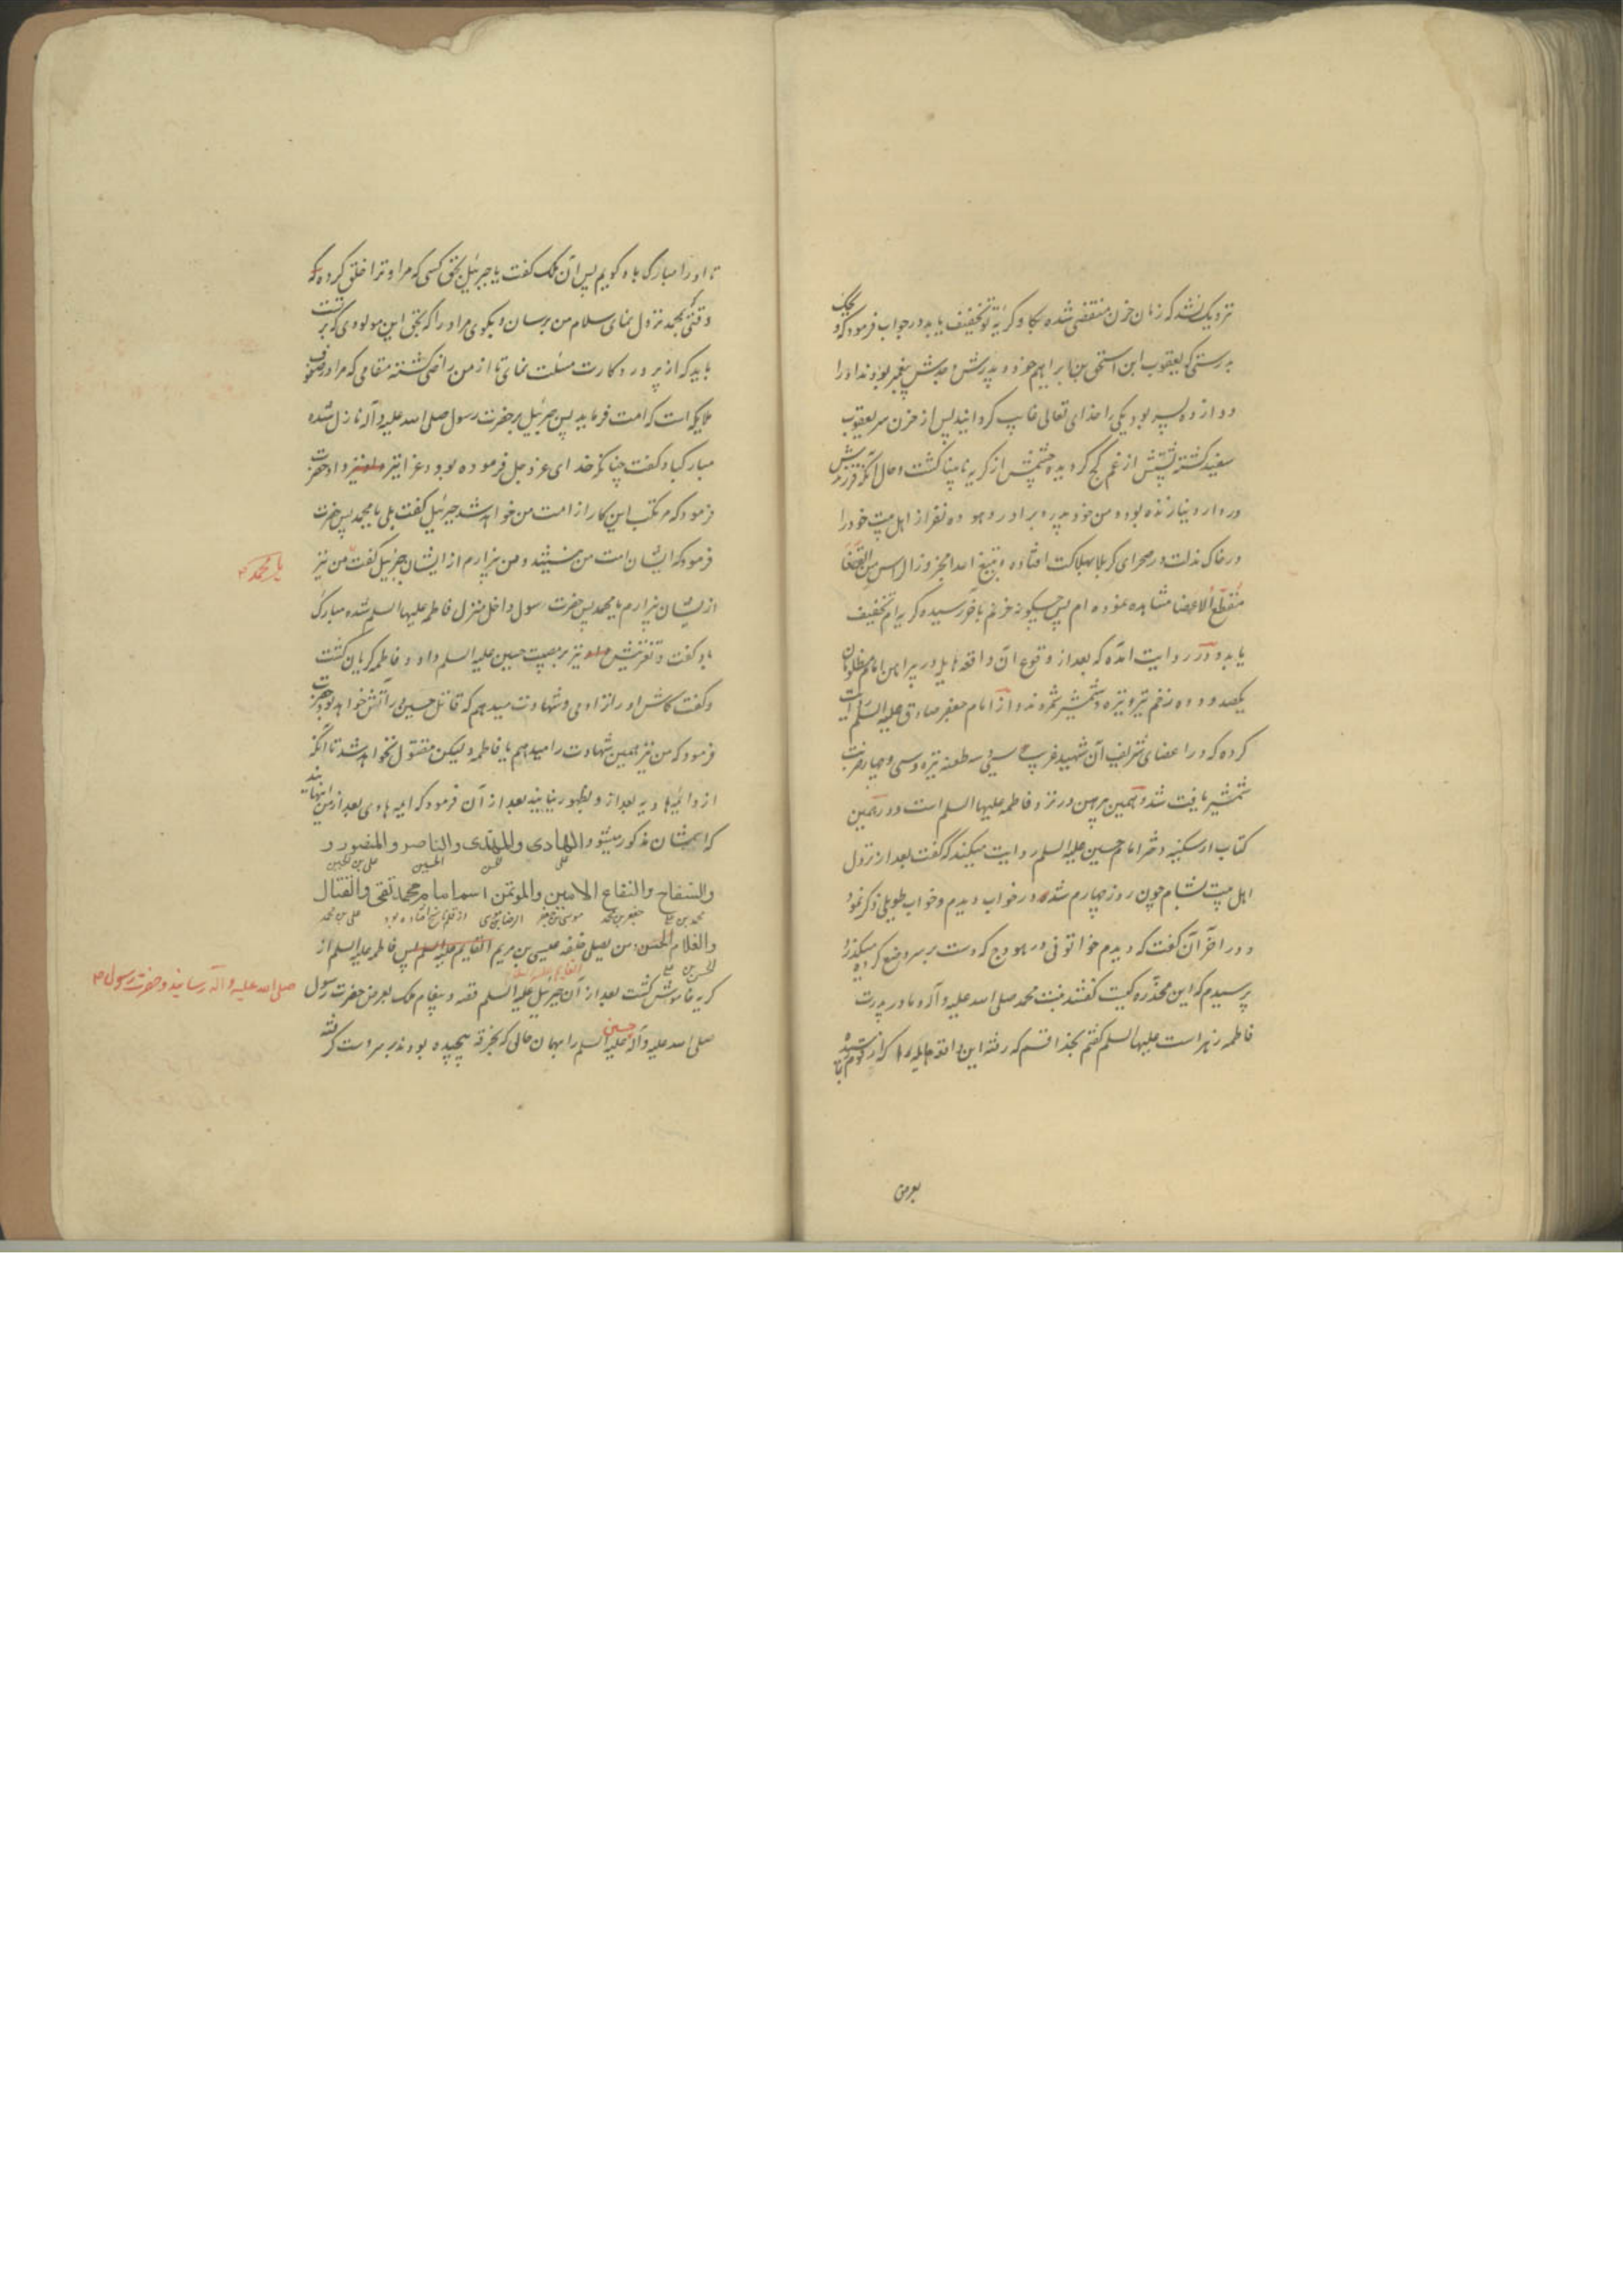 نزدیک نشد که زمان حزن منقضی شده بکا و گریهٔ تو تخفیف یابد در جواب فرمود که ویحک
بدرستی که یعقوب ابن اسحق بن ابراهیم خود و پدرش و جدش پیغمبر بودند او را
دوازده پسر بود یکی را خدای تعالی غایب گردانید پس از حزن سر یعقوب
سفید گشته پشتش از غم کج گردیده چشمش از گریه نابینا گشت و حال آنکه فرزندش
در دار دنیا زنده بود و من خود پدر و برادر و هوده نفر از اهل بیت خود را
در خاک مذلت در صحرای کربلا بهلاکت افتاده و بتیغ اعدا مجزوز الراس من القفا
مقطع الاعضا مشاهده نموده ام پس چگونه حزنم بآخر رسیده گریه ام تخفیف
یابد و در روایت آمده که بعد از وقوع آن واقعه هایل در پیراهن امام مظلومان
یکصد و ده زخم تیر و نیزه و شمشیر شمردند و از امام جعفر صادق علیه السلم روایت
کرده که در اعضای شریف آن شهید غریب سی و سه طعنه نیزه و سی و چهار ضربت
شمشیر یافت شد و همین پیرهن در نزد فاطمه علیها السلم است و در همین
کتاب از سکینه دختر امام حسین علیه السلم روایت میکند که گفت بعد از نزول
اهل بیت بشام چون روز چهارم شد در خواب دیدم و خواب طویلی ذکر نمود
و در آخر آن گفت که دیدم خواتونی در هودج که دست بر سر وضع کرده میگذرد
پرسیدم که این مخدره کیست گفتند بنت محمد صلی الله علیه و آله و مادر پدرت
فاطمه زهراست علیها السلم گفتم بخدا قسم که رفته این واقعه هایله را که از قوم بما رسیده
بعرض
تا او را مبارک باد گویم پس آن ملک گفت یا جبرئیل بحق کسی که مرا و ترا خلق کرده که
وقتی که بمحمد نزول نمای سلام من برسان و بگوی مر او را که بحق این مولودی که بر تست
باید که از پروردگارت مسئلت نمای تا از من راضی گشته مقامی که مرا در صفوف
ملایکه است کرامت فرماید پس جبرئیل بر حضرت رسول صلی الله علیه و آله نازل شده
مبارکباد گفت چنانکه خدای عز و جل فرموده بود و عزا نیز داد حضرت
فرمود که مرتکب این کار از امت من خواهد شد جبرئیل گفت بلی یا محمد پس حضرت
فرمود که ایشان امت من نیستند و من بیزارم از ایشان جبرئیل گفت من نیز
یا محمد
از ایشان بیزارم یا محمد پس حضرت رسول داخل منزل فاطمه علیها السلم شده مبارک
باد گفت و تعزیتش نیز بر مصیبت حسین علیه السلم داد و فاطمه گریان گشت
و گفت کاش او را نزادمی و شهادت میدهم که قاتل حسین در آتش خواهد بود حضرت
فرمود که من نیز همین شهادت را میدهم یا فاطمه ولیکن مقتول نخواهد شد تا آنکه
از او ائمه هادیه بعد از او بظهور بیایند بعد از آن فرمود که ایمه هادی بعد از من اینهایند
که اسمشان مذکور میشود الهادی والمهتدی والناصر والمنصور و
علی حسن الحسین علی بن الحسین
والسفاح والنفاع الامین والموتمن اسما امام محمد تقی والفتال
محمد بن علی جعفر بن محمد موسی بن جعفر الرضا بن موسی از قلم ناسخ افتاده بود علی بن محمد
والعلام الحسن من یصلی خلفه عیسی بن مریم القایم علیه السلم پس فاطمه علیها السلم از
الحسن بن علی القایم علیه السلم
گریه خاموش گشت بعد از آن جبرئیل علیه السلم قصه و پیغام ملک بعرض حضرت رسول
صلی الله علیه و آله رسانید و حضرت رسول
صلی الله علیه و آله حسین علیه السلم را بهمان حالی که بخرقه پیچیده بودند بر سر دست گرفته